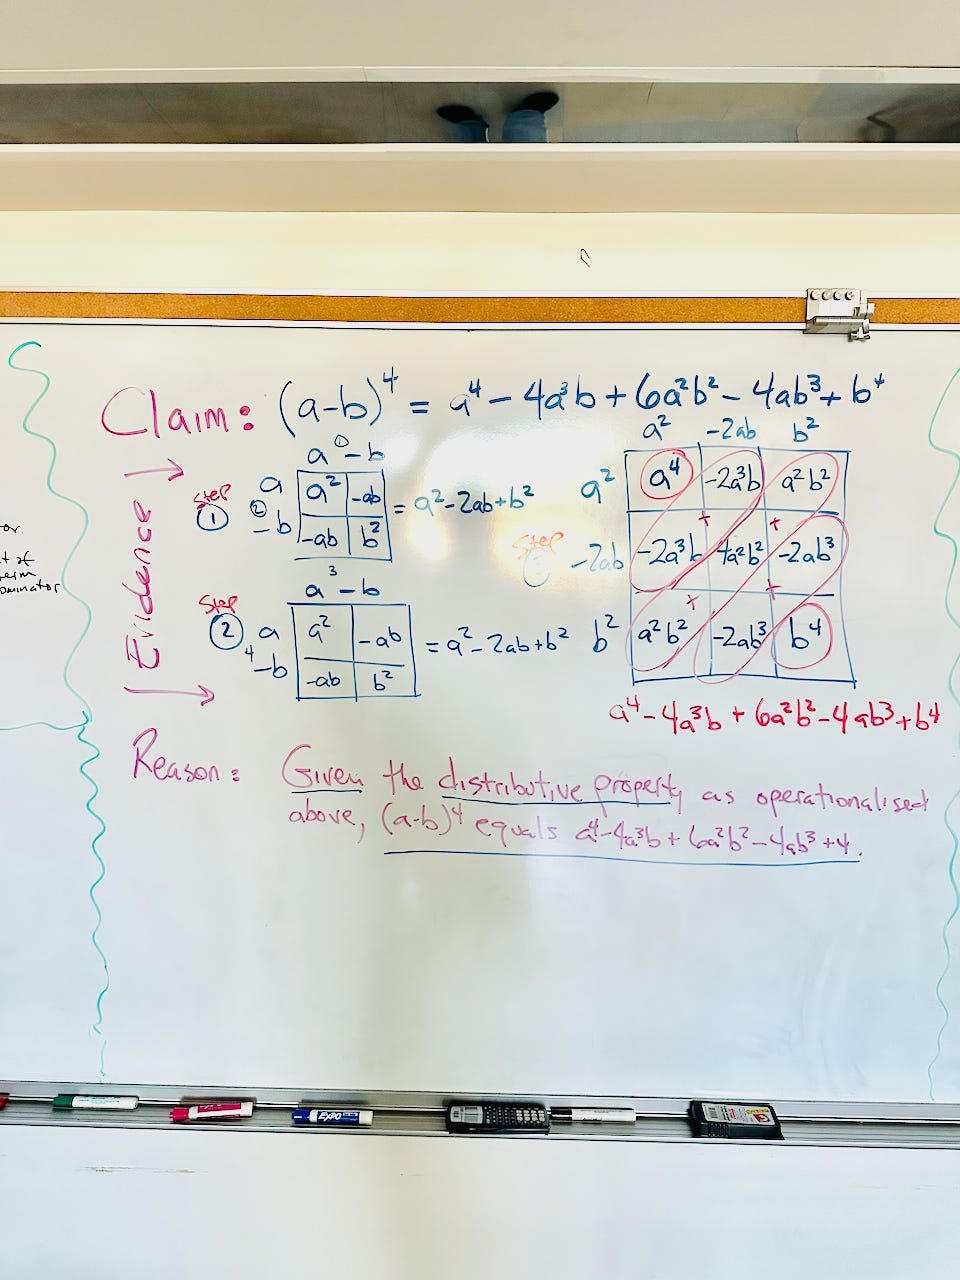 Claim: (a-b)⁴ = a⁴ - 4a³b + 6a²b² - 4ab³ + b⁴
Evidence
Step ①
① a - b
② a a² -ab
-b -ab b²
= a² - 2ab + b²
Step ②
3 a - b
a a² -ab
4 -b -ab b²
= a² - 2ab + b²
Step ③
a² -2ab b²
a² a⁴ -2a³b a²b²
-2ab -2a³b 4a²b² -2ab³
b² a²b² -2ab³ b⁴
+ + + +
a⁴ - 4a³b + 6a²b² - 4ab³ + b⁴
Reason: Given the distributive property as operationalised
above, (a-b)⁴ equals a⁴ - 4a³b + 6a²b² - 4ab³ + 4.
EXPO